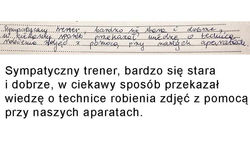 Sympatyczny trener, bardzo się stara i dobrze,
w ciekawy sposób przekazał wiedzę o technice
robienia zdjęć z pomocą przy naszych aparatach.
Sympatyczny trener, bardzo się stara
i dobrze, w ciekawy sposób przekazał
wiedzę o technice robienia zdjęć z pomocą
przy naszych aparatach.